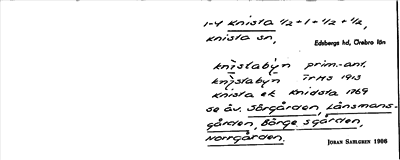 1-4 Knista 1/2 + 1 + 1/2 + 1/2,
Knista sn,
Edsbergs hd, Örebro län
knìstabỳn prim.-ant.
knìstabỳn TRHS 1913
Knista ek Knidsta 1769
se äv. Sörgården, Länsmans-
gården, Börge sgården,
Norrgården.
JÖRAN SAHLGREN 1906